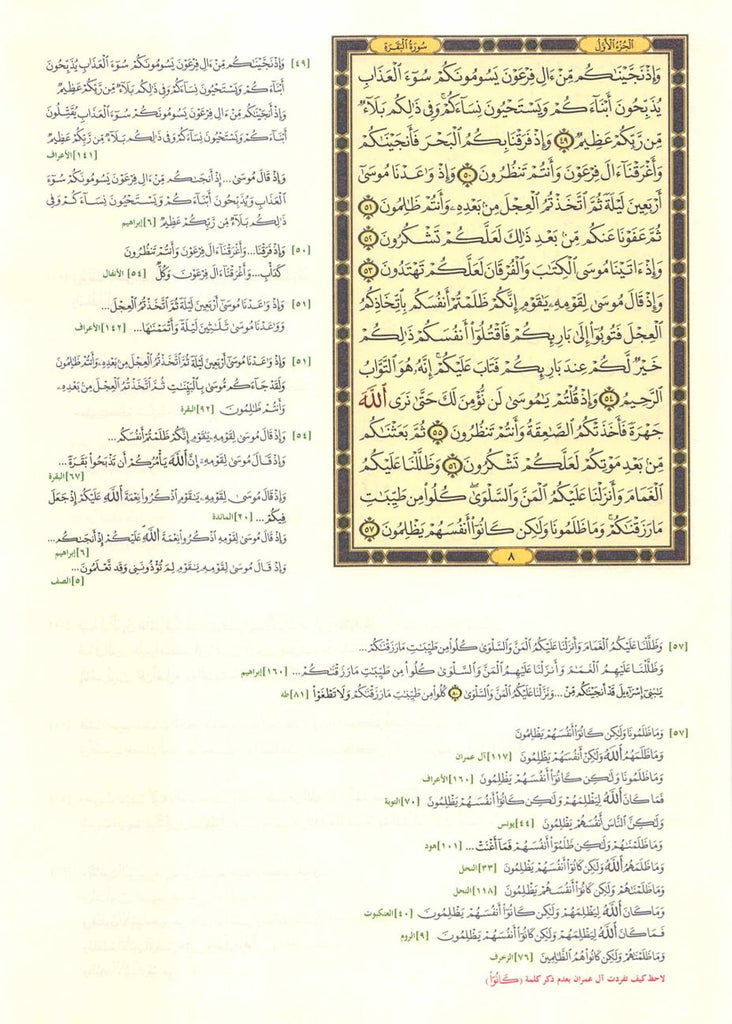 الجزء الأول
سورة البقرة
وَإِذْ نَجَّيْنَٰكُم مِّنْ ءَالِ فِرْعَوْنَ يَسُومُونَكُمْ سُوٓءَ ٱلْعَذَابِ
يُذَبِّحُونَ أَبْنَآءَكُمْ وَيَسْتَحْيُونَ نِسَآءَكُمْ ۚ وَفِى ذَٰلِكُم بَلَآءٌ
مِّن رَّبِّكُمْ عَظِيمٌ ٤٩ وَإِذْ فَرَقْنَا بِكُمُ ٱلْبَحْرَ فَأَنجَيْنَٰكُمْ
وَأَغْرَقْنَآ ءَالَ فِرْعَوْنَ وَأَنتُمْ تَنظُرُونَ ٥٠ وَإِذْ وَٰعَدْنَا مُوسَىٰٓ
أَرْبَعِينَ لَيْلَةً ثُمَّ ٱتَّخَذْتُمُ ٱلْعِجْلَ مِنۢ بَعْدِهِۦ وَأَنتُمْ ظَٰلِمُونَ ٥١
ثُمَّ عَفَوْنَا عَنكُم مِّنۢ بَعْدِ ذَٰلِكَ لَعَلَّكُمْ تَشْكُرُونَ ٥٢
وَإِذْ ءَاتَيْنَا مُوسَى ٱلْكِتَٰبَ وَٱلْفُرْقَانَ لَعَلَّكُمْ تَهْتَدُونَ ٥٣
وَإِذْ قَالَ مُوسَىٰ لِقَوْمِهِۦ يَٰقَوْمِ إِنَّكُمْ ظَلَمْتُمْ أَنفُسَكُم بِٱتِّخَاذِكُمُ
ٱلْعِجْلَ فَتُوبُوٓا۟ إِلَىٰ بَارِئِكُمْ فَٱقْتُلُوٓا۟ أَنفُسَكُمْ ذَٰلِكُمْ
خَيْرٌ لَّكُمْ عِندَ بَارِئِكُمْ فَتَابَ عَلَيْكُمْ ۚ إِنَّهُۥ هُوَ ٱلتَّوَّابُ
ٱلرَّحِيمُ ٥٤ وَإِذْ قُلْتُمْ يَٰمُوسَىٰ لَن نُّؤْمِنَ لَكَ حَتَّىٰ نَرَى ٱللَّهَ
جَهْرَةً فَأَخَذَتْكُمُ ٱلصَّٰعِقَةُ وَأَنتُمْ تَنظُرُونَ ٥٥ ثُمَّ بَعَثْنَٰكُم
مِّنۢ بَعْدِ مَوْتِكُمْ لَعَلَّكُمْ تَشْكُرُونَ ٥٦ وَظَلَّلْنَا عَلَيْكُمُ
ٱلْغَمَامَ وَأَنزَلْنَا عَلَيْكُمُ ٱلْمَنَّ وَٱلسَّلْوَىٰ ۖ كُلُوا۟ مِن طَيِّبَٰتِ
مَا رَزَقْنَٰكُمْ ۖ وَمَا ظَلَمُونَا وَلَٰكِن كَانُوٓا۟ أَنفُسَهُمْ يَظْلِمُونَ ٥٧
٨
[٤٩] وَإِذْ نَجَّيْنَٰكُم مِّنْ ءَالِ فِرْعَوْنَ يَسُومُونَكُمْ سُوٓءَ ٱلْعَذَابِ يُذَبِّحُونَ
أَبْنَآءَكُمْ وَيَسْتَحْيُونَ نِسَآءَكُمْ وَفِى ذَٰلِكُم بَلَآءٌ مِّن رَّبِّكُمْ عَظِيمٌ
وَإِذْ أَنجَيْنَٰكُم مِّنْ ءَالِ فِرْعَوْنَ يَسُومُونَكُمْ سُوٓءَ ٱلْعَذَابِ يُقَتِّلُونَ
أَبْنَآءَكُمْ وَيَسْتَحْيُونَ نِسَآءَكُمْ وَفِى ذَٰلِكُم بَلَآءٌ مِّن رَّبِّكُمْ عَظِيمٌ
[١٤١] الأعراف
وَإِذْ قَالَ مُوسَىٰ... إِذْ أَنجَىٰكُم مِّنْ ءَالِ فِرْعَوْنَ يَسُومُونَكُمْ سُوٓءَ
ٱلْعَذَابِ وَيُذَبِّحُونَ أَبْنَآءَكُمْ وَيَسْتَحْيُونَ نِسَآءَكُمْ وَفِى
ذَٰلِكُم بَلَآءٌ مِّن رَّبِّكُمْ عَظِيمٌ [٦] إبراهيم
[٥٠] وَإِذْ فَرَقْنَا... وَأَغْرَقْنَآ ءَالَ فِرْعَوْنَ وَأَنتُمْ تَنظُرُونَ
كَدَأْبِ... وَأَغْرَقْنَآ ءَالَ فِرْعَوْنَ وَكُلٌّ [٥٤] الأنفال
[٥١] وَإِذْ وَٰعَدْنَا مُوسَىٰٓ أَرْبَعِينَ لَيْلَةً ثُمَّ ٱتَّخَذْتُمُ ٱلْعِجْلَ...
وَوَٰعَدْنَا مُوسَىٰ ثَلَٰثِينَ لَيْلَةً وَأَتْمَمْنَٰهَا... [١٤٢] الأعراف
[٥١] وَإِذْ وَٰعَدْنَا مُوسَىٰٓ أَرْبَعِينَ لَيْلَةً ثُمَّ ٱتَّخَذْتُمُ ٱلْعِجْلَ مِنۢ بَعْدِهِۦ وَأَنتُمْ ظَٰلِمُونَ
وَلَقَدْ جَآءَكُم مُّوسَىٰ بِٱلْبَيِّنَٰتِ ثُمَّ ٱتَّخَذْتُمُ ٱلْعِجْلَ مِنۢ بَعْدِهِۦ
وَأَنتُمْ ظَٰلِمُونَ [٩٢] البقرة
[٥٤] وَإِذْ قَالَ مُوسَىٰ لِقَوْمِهِۦ يَٰقَوْمِ إِنَّكُمْ ظَلَمْتُمْ أَنفُسَكُم...
وَإِذْ قَالَ مُوسَىٰ لِقَوْمِهِۦٓ إِنَّ ٱللَّهَ يَأْمُرُكُمْ أَن تَذْبَحُوا۟ بَقَرَةً...
[٦٧] البقرة
وَإِذْ قَالَ مُوسَىٰ لِقَوْمِهِۦ يَٰقَوْمِ ٱذْكُرُوا۟ نِعْمَةَ ٱللَّهِ عَلَيْكُمْ إِذْ جَعَلَ
فِيكُمْ... [٢٠] المائدة
وَإِذْ قَالَ مُوسَىٰ لِقَوْمِهِ ٱذْكُرُوا۟ نِعْمَةَ ٱللَّهِ عَلَيْكُمْ إِذْ أَنجَىٰكُم...
[٦] إبراهيم
وَإِذْ قَالَ مُوسَىٰ لِقَوْمِهِۦ يَٰقَوْمِ لِمَ تُؤْذُونَنِى وَقَد تَّعْلَمُونَ...
[٥] الصف
[٥٧] وَظَلَّلْنَا عَلَيْكُمُ ٱلْغَمَامَ وَأَنزَلْنَا عَلَيْكُمُ ٱلْمَنَّ وَٱلسَّلْوَىٰ كُلُوا۟ مِن طَيِّبَٰتِ مَا رَزَقْنَٰكُمْ...
وَظَلَّلْنَا عَلَيْهِمُ ٱلْغَمَٰمَ وَأَنزَلْنَا عَلَيْهِمُ ٱلْمَنَّ وَٱلسَّلْوَىٰ كُلُوا۟ مِن طَيِّبَٰتِ مَا رَزَقْنَٰكُمْ... [١٦٠] إبراهيم
يَٰبَنِىٓ إِسْرَٰٓءِيلَ قَدْ أَنجَيْنَٰكُم مِّنْ... وَنَزَّلْنَا عَلَيْكُمُ ٱلْمَنَّ وَٱلسَّلْوَىٰ ٨٠ كُلُوا۟ مِن طَيِّبَٰتِ مَا رَزَقْنَٰكُمْ وَلَا تَطْغَوْا۟ [٨١] طه
[٥٧] وَمَا ظَلَمُونَا وَلَٰكِن كَانُوٓا۟ أَنفُسَهُمْ يَظْلِمُونَ
وَمَا ظَلَمَهُمُ ٱللَّهُ وَلَٰكِنْ أَنفُسَهُمْ يَظْلِمُونَ [١١٧] آل عمران
وَمَا ظَلَمُونَا وَلَٰكِن كَانُوٓا۟ أَنفُسَهُمْ يَظْلِمُونَ [١٦٠] الأعراف
فَمَا كَانَ ٱللَّهُ لِيَظْلِمَهُمْ وَلَٰكِن كَانُوٓا۟ أَنفُسَهُمْ يَظْلِمُونَ [٧٠] التوبة
وَلَٰكِنَّ ٱلنَّاسَ أَنفُسَهُمْ يَظْلِمُونَ [٤٤] يونس
وَمَا ظَلَمْنَٰهُمْ وَلَٰكِن ظَلَمُوٓا۟ أَنفُسَهُمْ فَمَآ أَغْنَتْ... [١٠١] هود
وَمَا ظَلَمَهُمُ ٱللَّهُ وَلَٰكِن كَانُوٓا۟ أَنفُسَهُمْ يَظْلِمُونَ [٣٣] النحل
وَمَا ظَلَمْنَٰهُمْ وَلَٰكِن كَانُوٓا۟ أَنفُسَهُمْ يَظْلِمُونَ [١١٨] النحل
وَمَا كَانَ ٱللَّهُ لِيَظْلِمَهُمْ وَلَٰكِن كَانُوٓا۟ أَنفُسَهُمْ يَظْلِمُونَ [٤٠] العنكبوت
فَمَا كَانَ ٱللَّهُ لِيَظْلِمَهُمْ وَلَٰكِن كَانُوٓا۟ أَنفُسَهُمْ يَظْلِمُونَ [٩] الروم
وَمَا ظَلَمْنَٰهُمْ وَلَٰكِن كَانُوا۟ هُمُ ٱلظَّٰلِمِينَ [٧٦] الزخرف
لاحظ كيف تفردت آل عمران بعدم ذكر كلمة (كَانُوٓا۟)